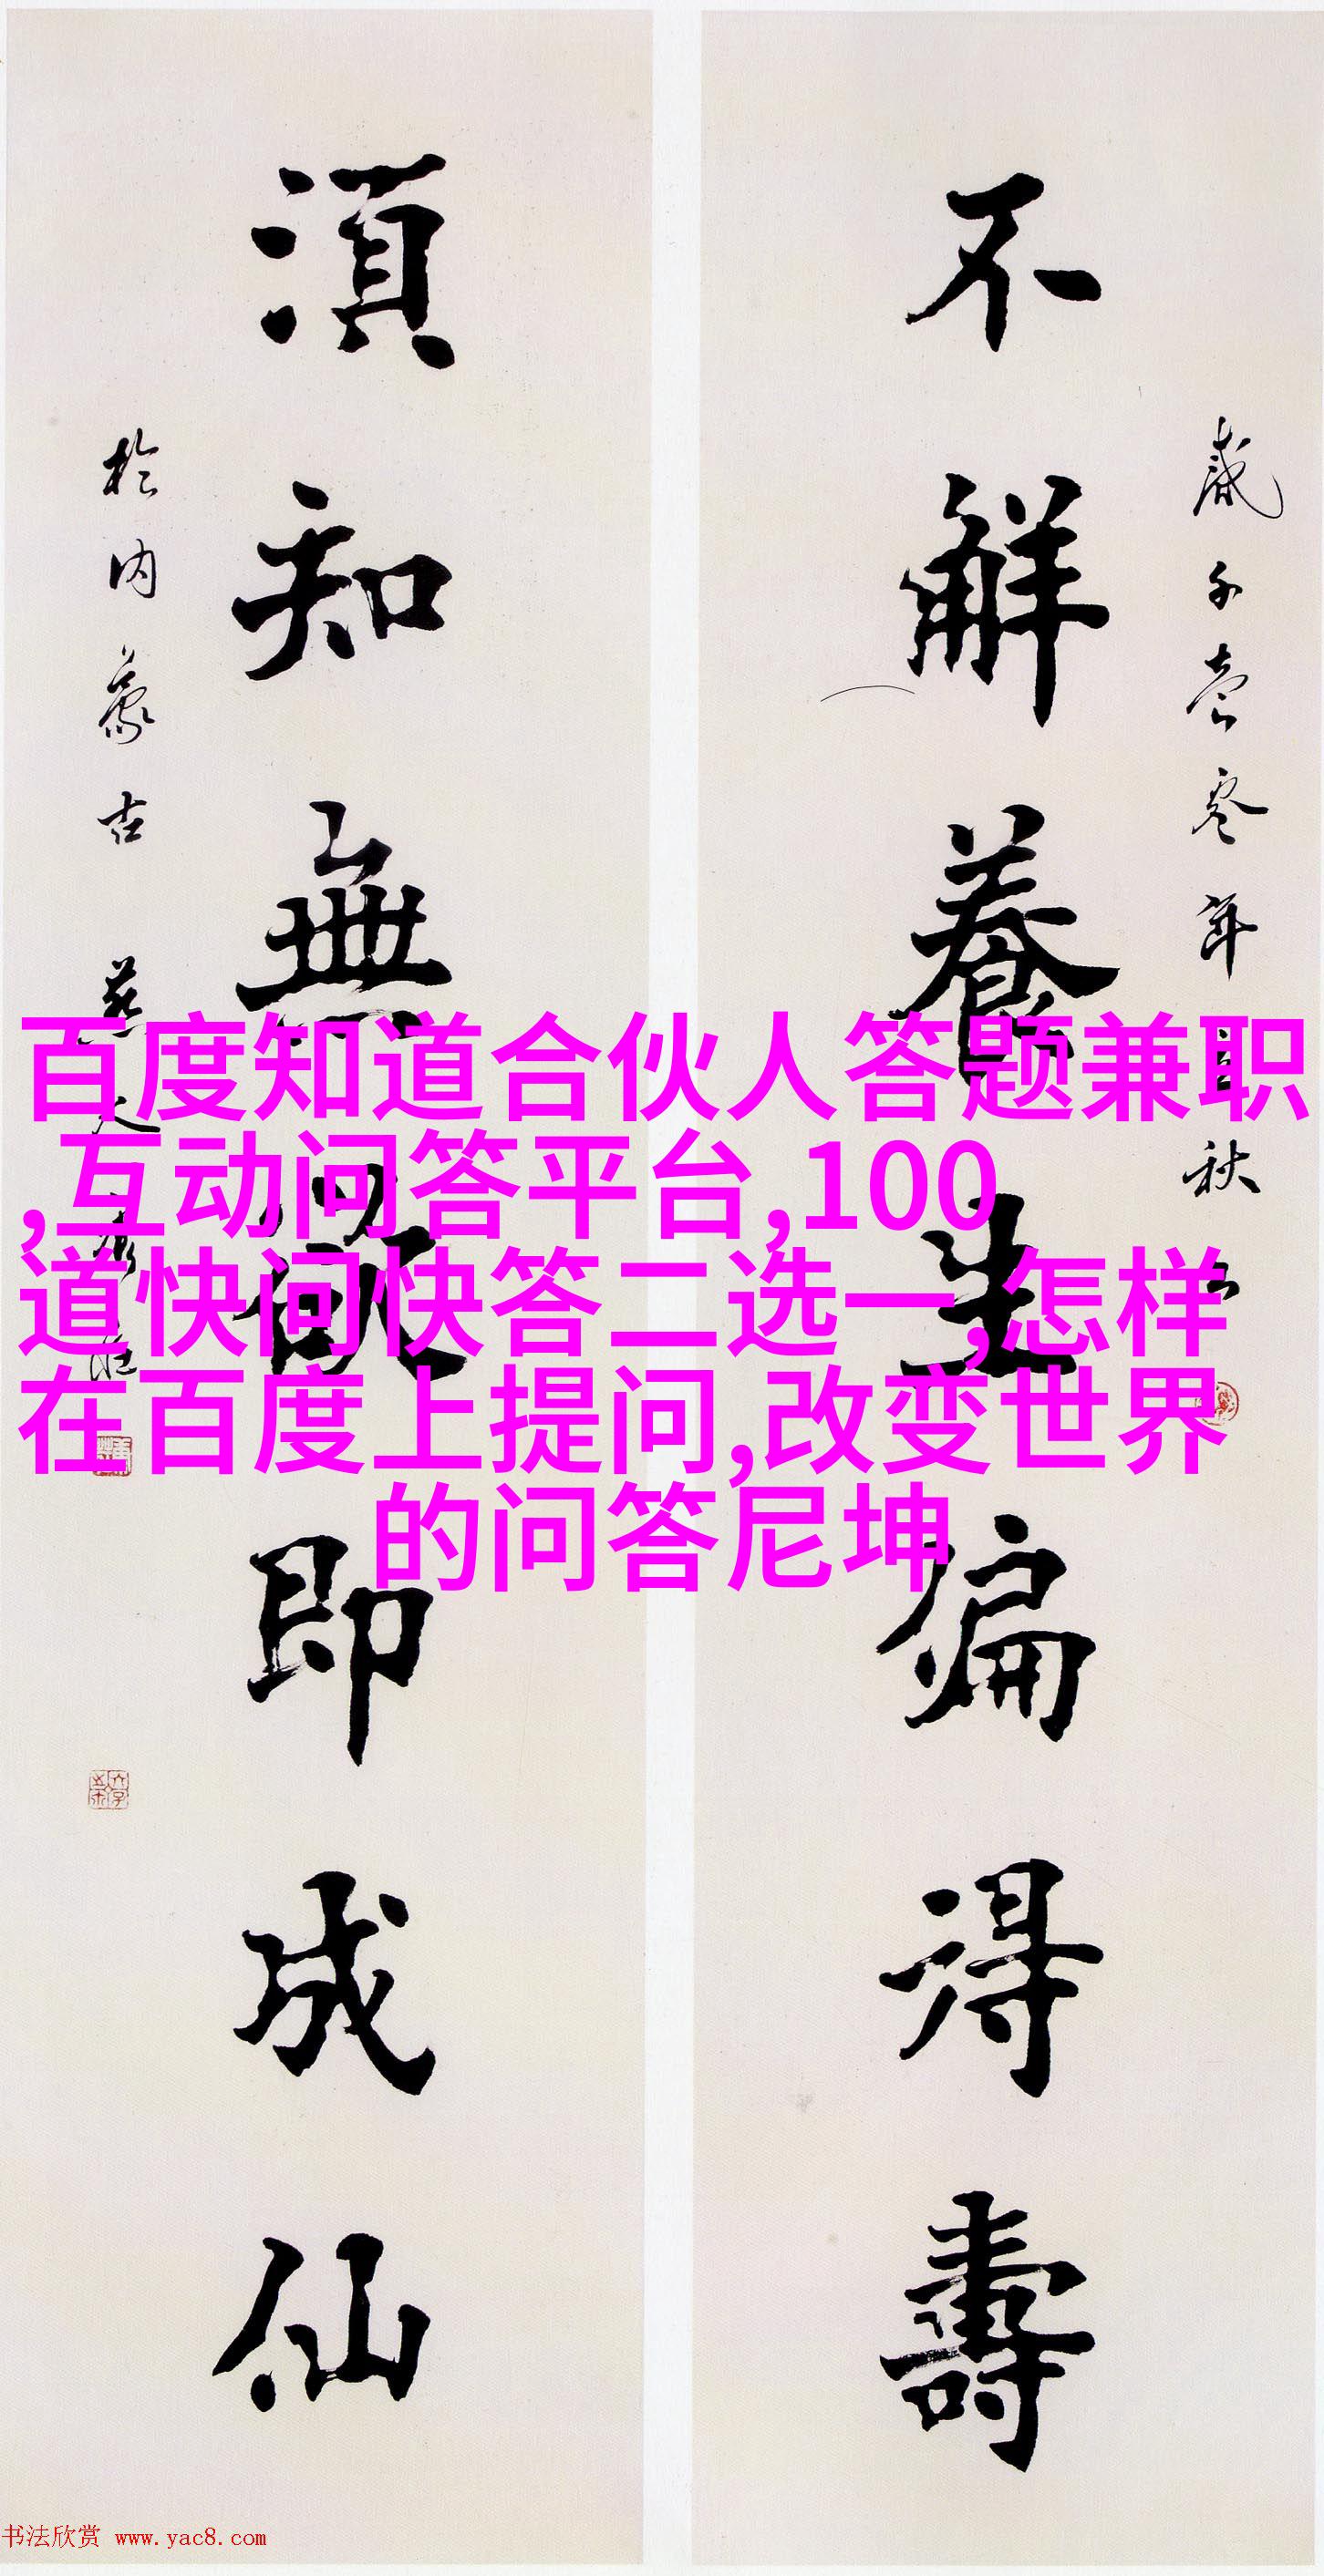 不解養生偏得壽
須知無欲即成仙
於内蒙古
百度知道合伙人答题兼职
,互动问答平台,100
道快问快答二选一,怎样
在百度上提问,改变世界
的问答尼坤
书法欣赏 www.yac8.com